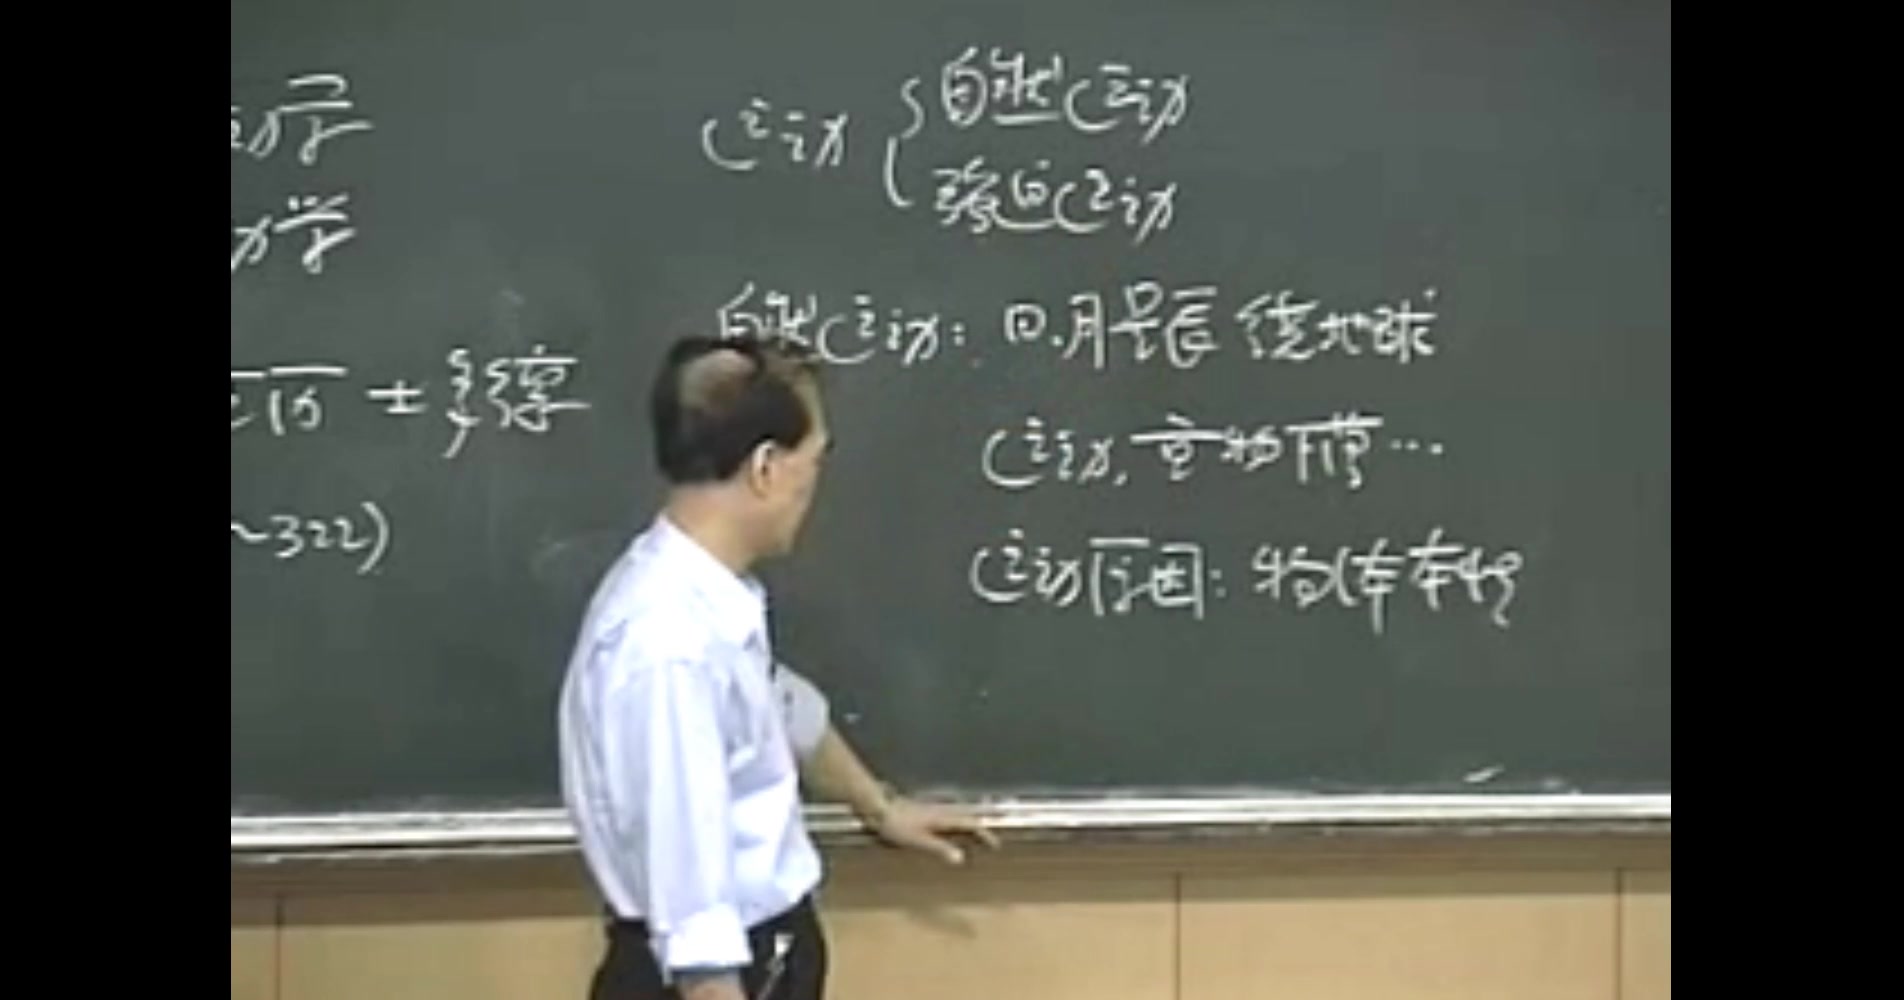 动学
力学
~322)
运动 { 自然运动
强迫运动
自然运动: 日.月星辰 绕地球
运动, 重物下落…
运动原因: 物体本性